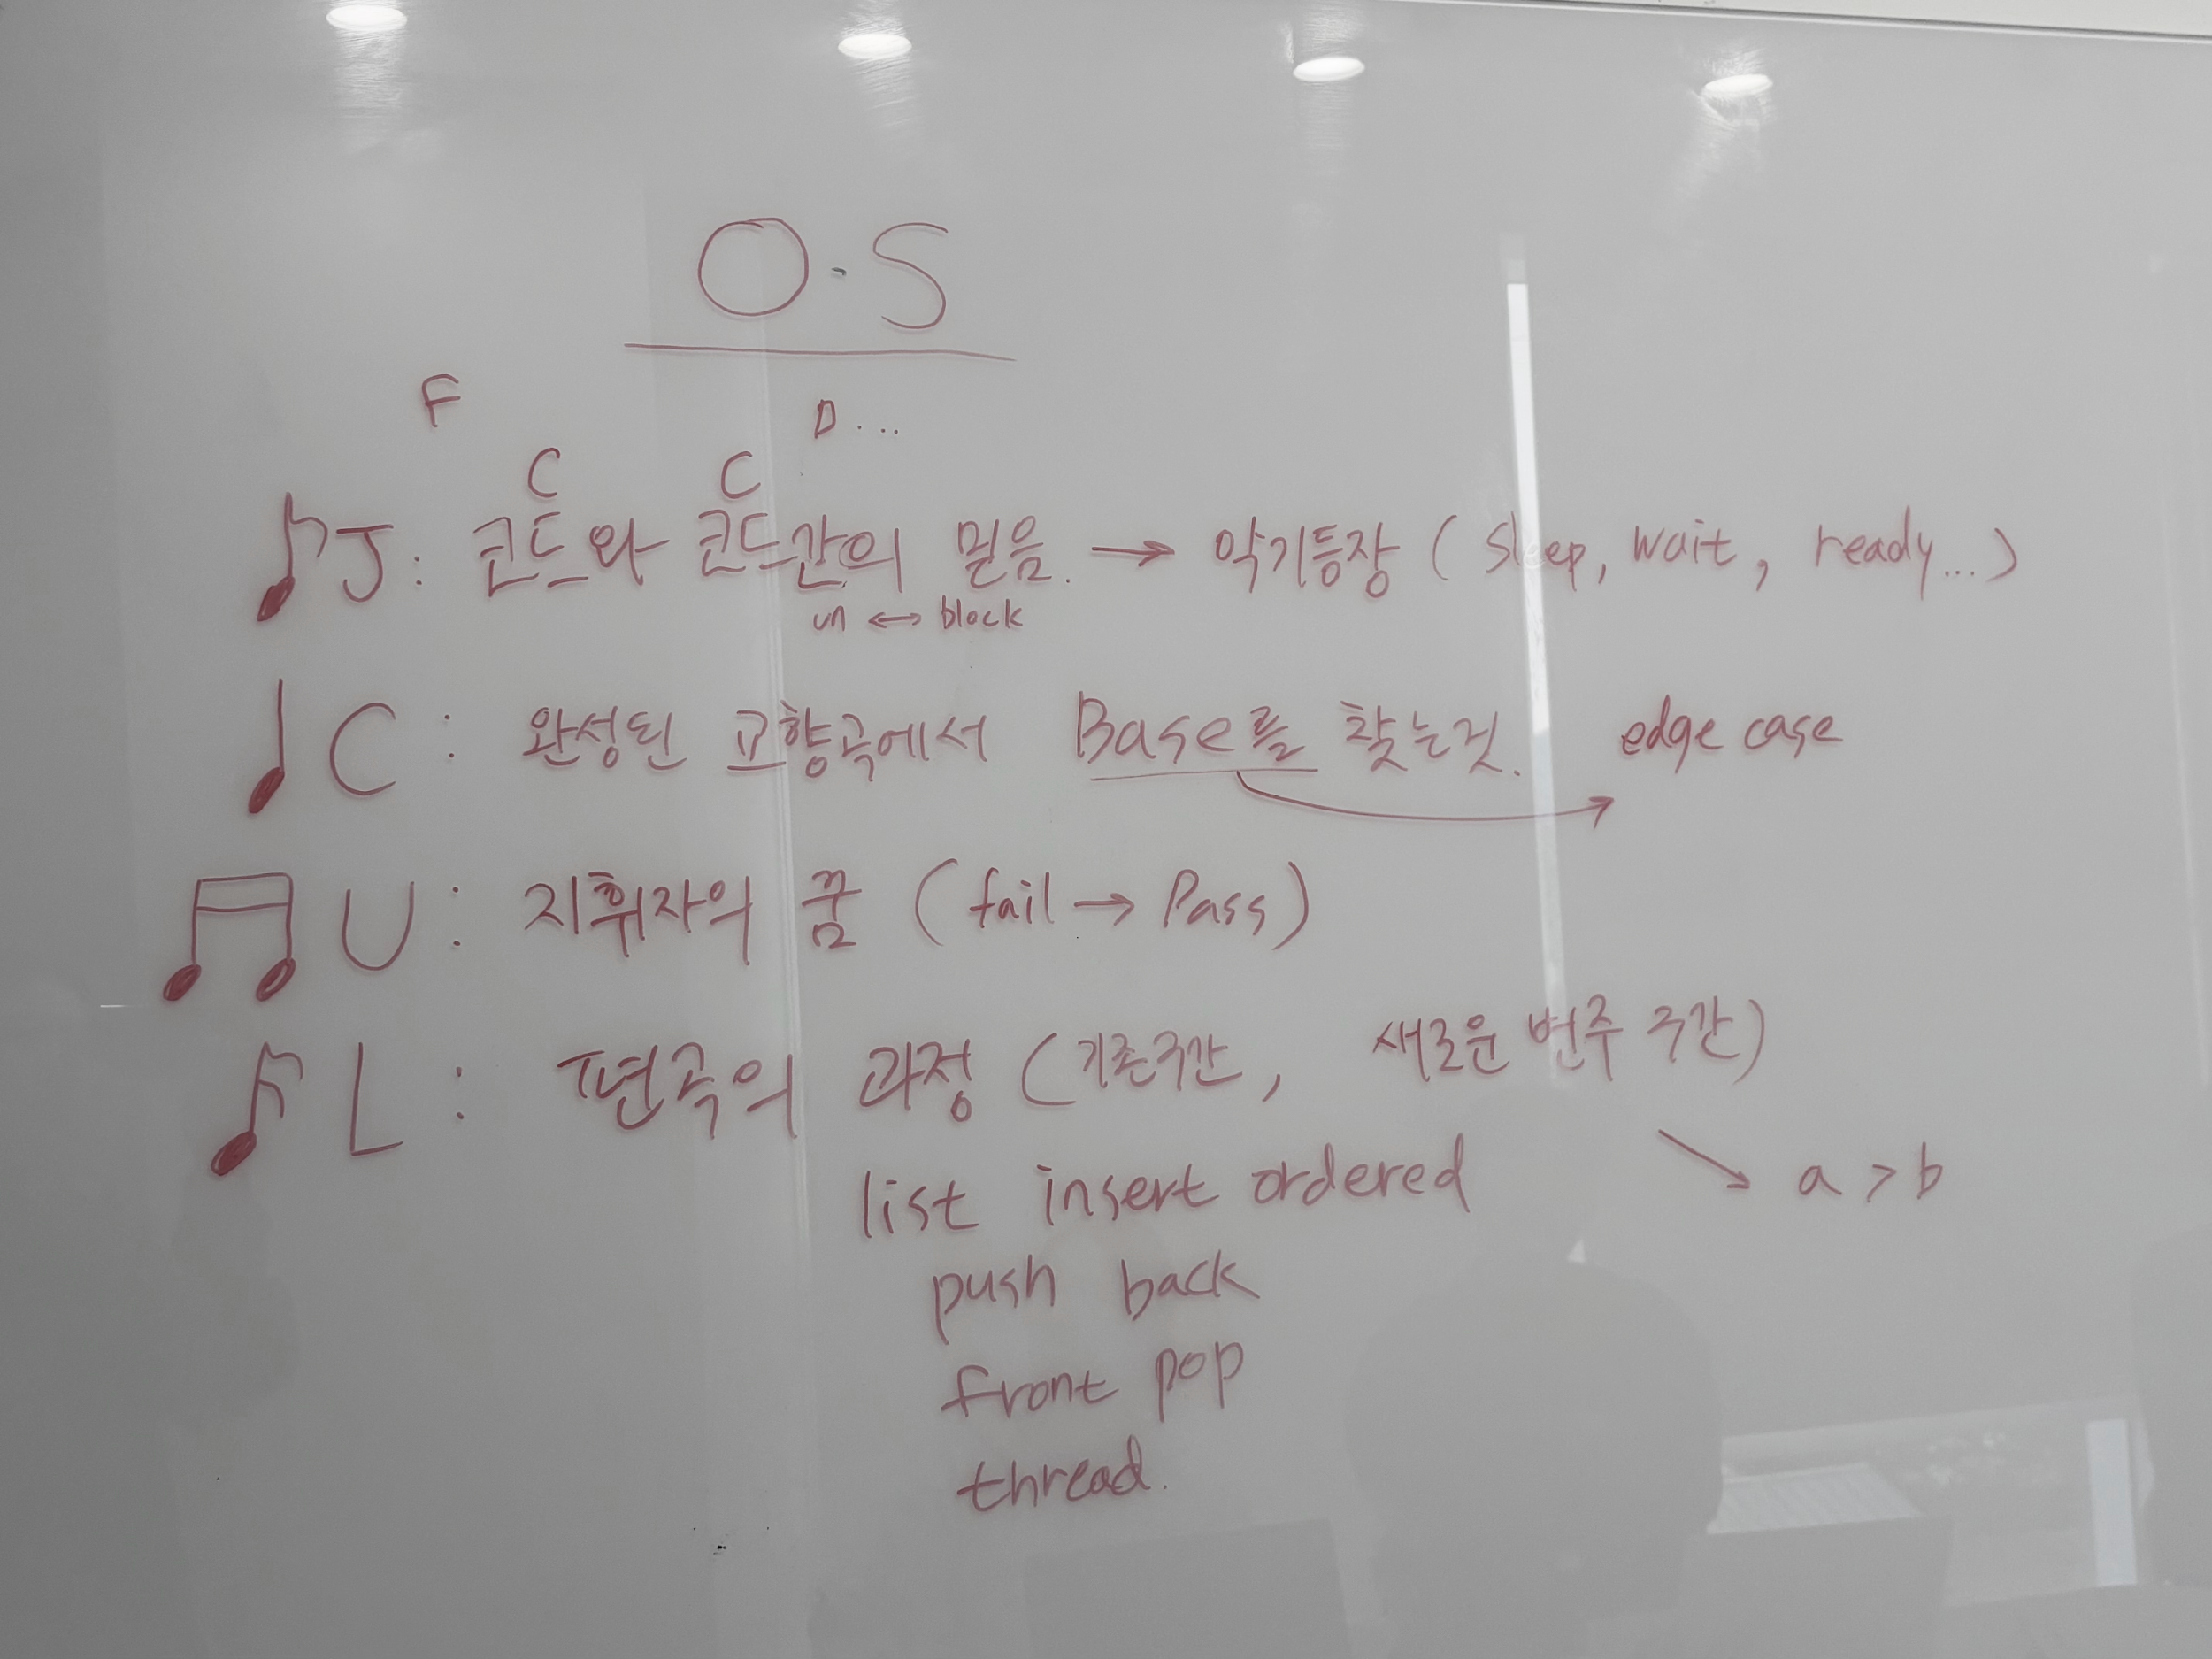 O·S
F
D...
C C
J: 코드와 코드간의 믿음. → 악기등장 ( sleep, wait, ready... )
un ↔ block
C : 완성된 교향곡에서 Base를 찾는것. edge case
U : 지휘자의 꿈 ( fail → Pass )
L : 편곡의 과정 ( 기존구간, 새로운 변주 구간 )
list insert ordered a > b
push back
front pop
thread.